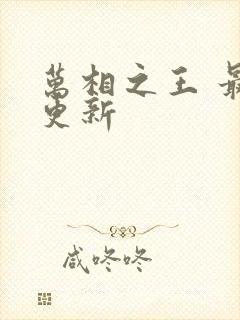 萬相之王 最
更新
咸咚咚